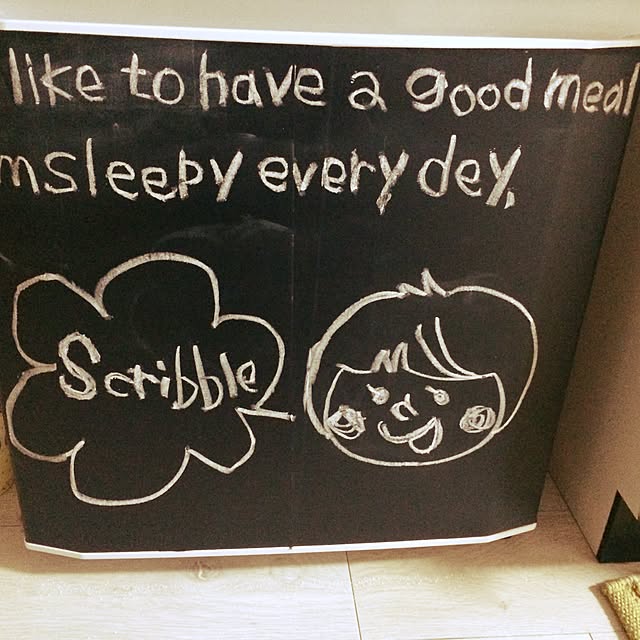 like to have a good meal
msleepy every dey.
Scribble